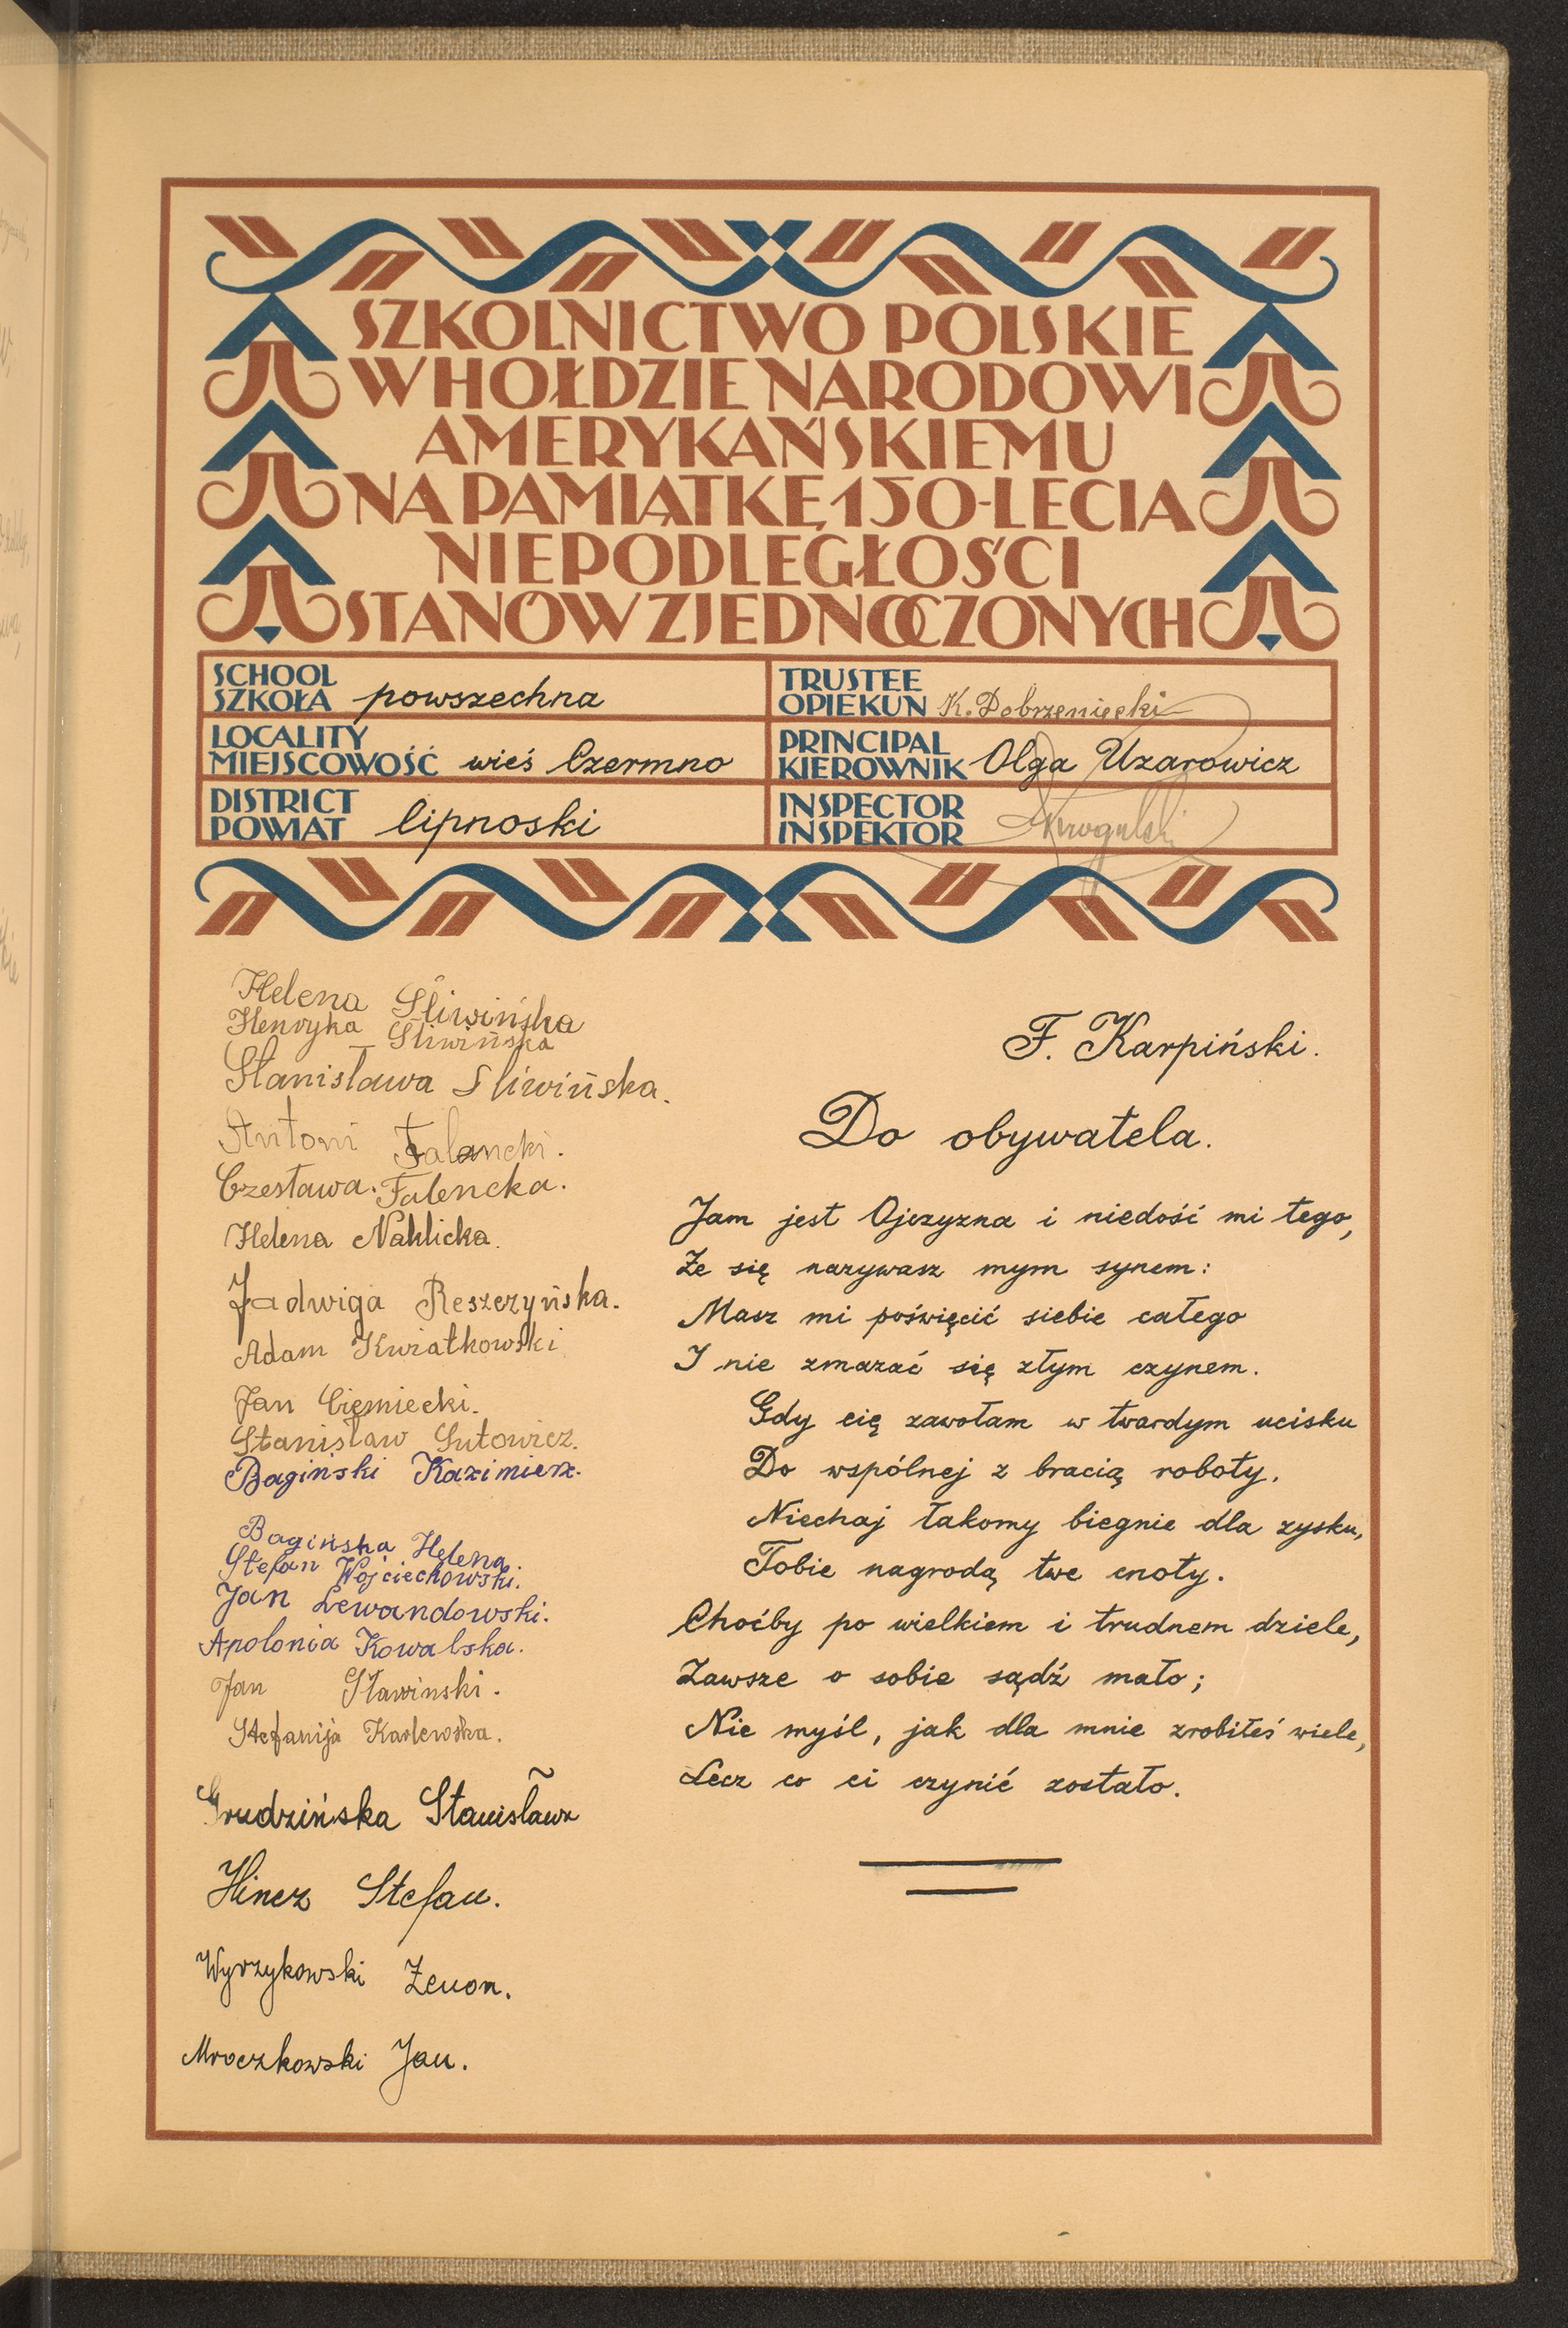 SZKOLNICTWO POLSKIE
W HOŁDZIE NARODOWI
AMERYKAŃSKIEMU
NA PAMIĄTKĘ 150-LECIA
NIEPODLEGŁOŚCI
STANÓW ZJEDNOCZONYCH
SCHOOL
SZKOŁA powszechna
TRUSTEE
OPIEKUN K. Dobrzeniecki
LOCALITY
MIEJSCOWOŚĆ wieś Czermno
PRINCIPAL
KIEROWNIK Olga Uzarowicz
DISTRICT
POWIAT lipnoski
INSPECTOR
INSPEKTOR
Helena Śliwińska
Henryka Śliwińska
Stanisława Śliwińska.
Antoni Falencki.
Czesława. Falencka.
Helena Nahlicka.
Jadwiga Reszczyńska.
Adam Kwiatkowski
Jan Ciemiecki.
Stanisław Gutowicz.
Bagiński Kazimierz.
Bagińska Helena.
Stefan Wojciechowski.
Jan Lewandowski.
Apolonia Kowalska.
Jan Sławinski.
Stefanija Karlewska.
Grudzińska Stanisława
Hincz Stefan.
Wyrzykowski Zenon.
Mroczkowski Jan.
F. Karpiński.
Do obywatela.
Jam jest Ojczyzna i niedość mi tego,
Że się nazywasz mym synem:
Masz mi poświęcić siebie całego
I nie zmazać się złym czynem.
Gdy cię zawołam w twardym ucisku
Do wspólnej z bracią roboty.
Niechaj łakomy biegnie dla zysku,
Tobie nagrodą twe cnoty.
Choćby po wielkiem i trudnem dziele,
Zawsze o sobie sądź mało;
Nie myśl, jak dla mnie zrobiłeś wiele,
Lecz co ci czynić zostało.